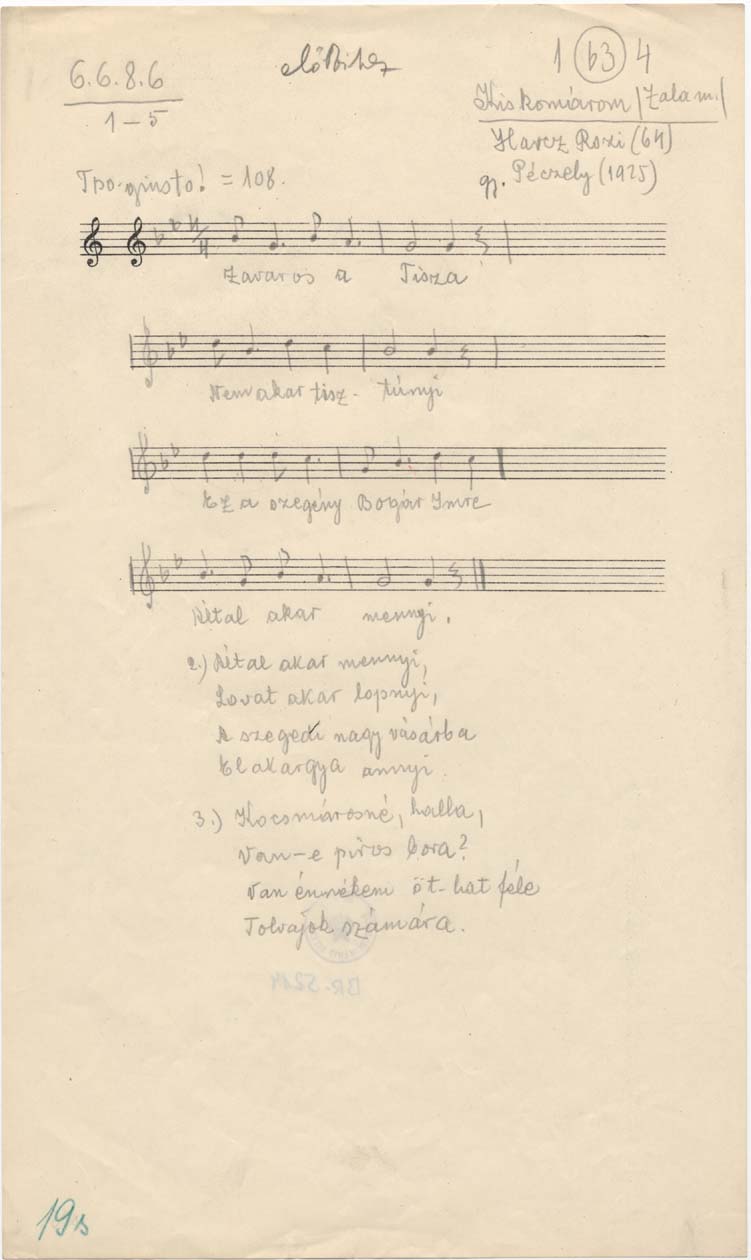 6.6.8.6
1–5
1 (b3) 4
Kiskomárom /Zala m./
Harcz Rozi (64)
gy. Péczely (1925)
Tpo-giusto! = 108.
4/4
Zavaros a Tisza
Nem akar tisz- túnyi
Ez a szegény Bogár Imre
Által akar mennyi.
2.) Által akar mennyi,
Lovat akar lopnyi,
A szegedi nagy vásárba
El akargya annyi.
3.) Kocsmárosné, halla,
Van-e piros bora?
Van énnékem öt-hat féle
Tolvajok számára.
BR. 5214
19s